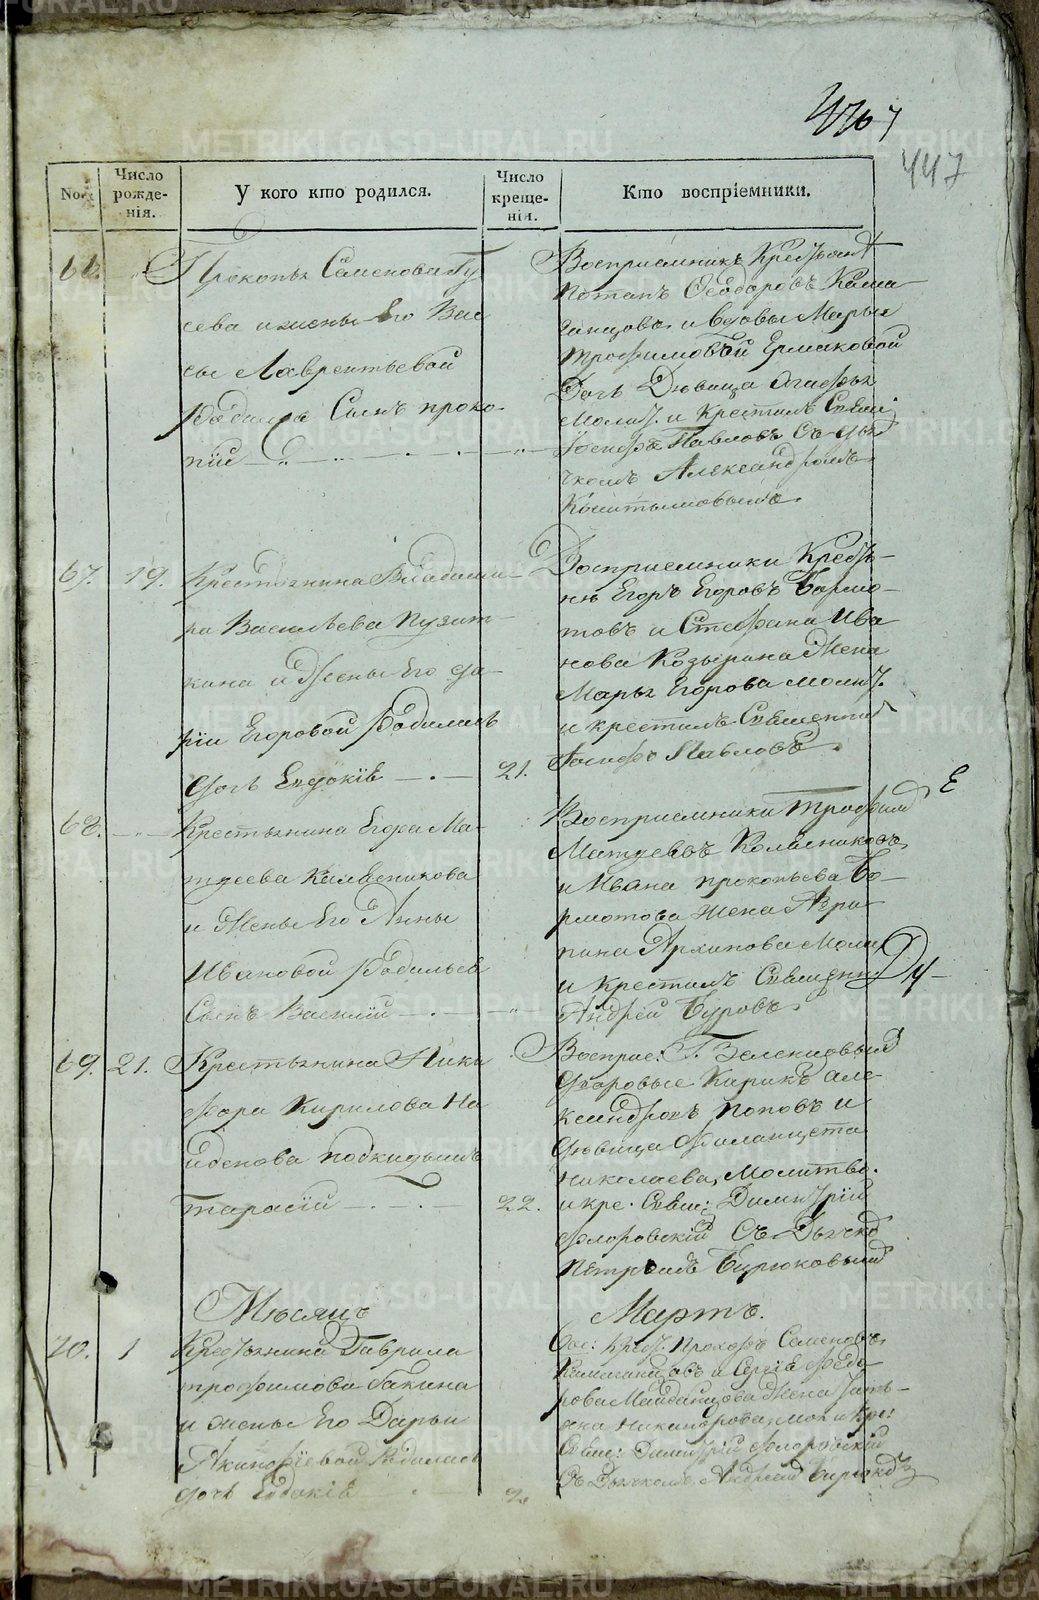 447
No.
Число рожде-нія.
У кого кто родился.
Число креще-нія.
Кто воспріемники.
66.
Прокопья Семенова Гу
сева и жены Его Вас
сы Лаврентьевой
Родился Сынъ проко-
пій
Воспріемникъ Крестьян
Потапъ Ѳеодоровъ Кама
ганцовъ и вдовы Марьи
трофимовой Ермаковой
Дочь Дѣвица
Молит. и Крестилъ Свящ
Іосифъ Павловъ съ дья
чкомъ Александромъ
67.
19.
Крестьянина Владими-
ра Васильева
кина и Жены Его да-
ріи Егоровой Родилась
дочь Евдокія
21.
Воспріемники Кресть-
нъ Егоръ Егоровъ Бармо-
товъ и Стефана Ива
нова Козырина Жена
Марья Егорова молит.
и крестилъ Священни
Іосифъ Павловъ
68.
Крестьянина Егора Ма-
тѳеева Калѣсникова
и Жены Его Анны
Ивановой Родился
Сынъ Василій
Воспріемники Трофим
Матѳеевъ Колѣсниковъ
и Ивана прокопьева Бо-
рмотова жена Агри-
пина Архипова Моли
и крестилъ Священни
Андрей Буровъ
69.
21.
Крестьянина Ники
фора Кирилова На
йденова подкидышъ
тарасій
22.
Воспріе: Г. Зеленцовы
Дворовые Кирикъ але-
ксандровъ поповъ и
дѣвица филанцета
Николаева, Молитво.
и кре. Свящ: Димитрій
флоровскій съ Дьячко
Петромъ Бирюковым
Мѣсяцъ
Мартъ.
70.
1
Крестьянина Гаврила
трофимова Галкина
и жены Его Дарьи
Акинфіевой Родилась
дочь Евдокія
2.
Вос: Крест. Прохоръ Семеновъ
Камаганцовъ и Сергія федо-
рова Майданцова Жена Уль-
яна Никифорова мол и Кре:
Свящ: Димитрій флоровскій
съ Дьячкомъ Андреем Бирюко